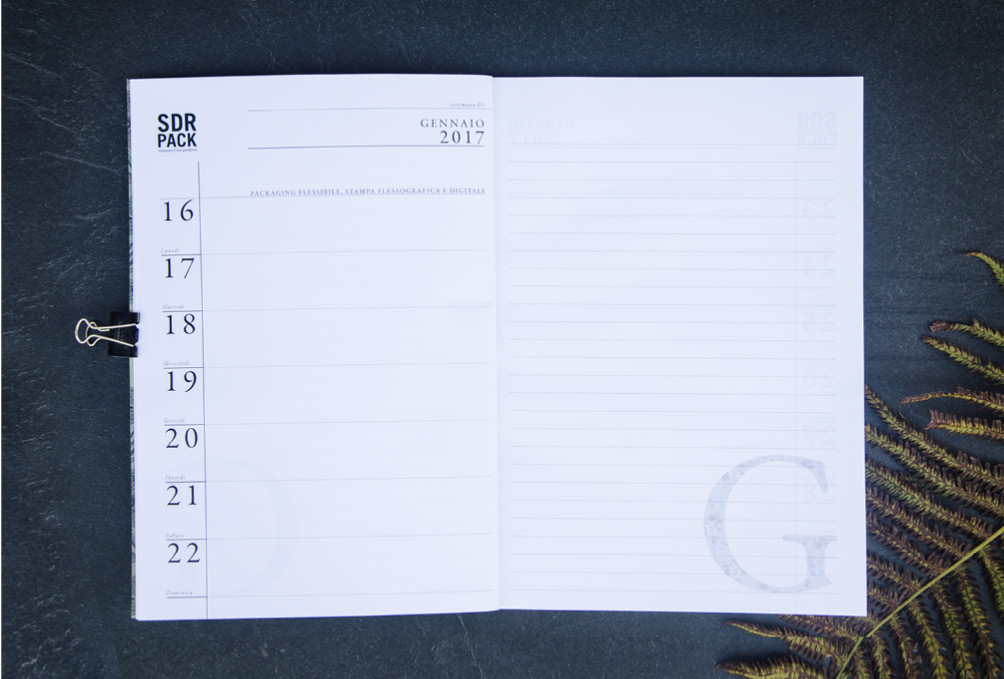 SDR
PACK
settimana 03
GENNAIO
2017
PACKAGING FLESSIBILE, STAMPA FLESSOGRAFICA E DIGITALE
16
Lunedì
17
Martedì
18
Mercoledì
19
Giovedì
20
Venerdì
21
Sabato
22
Domenica
G